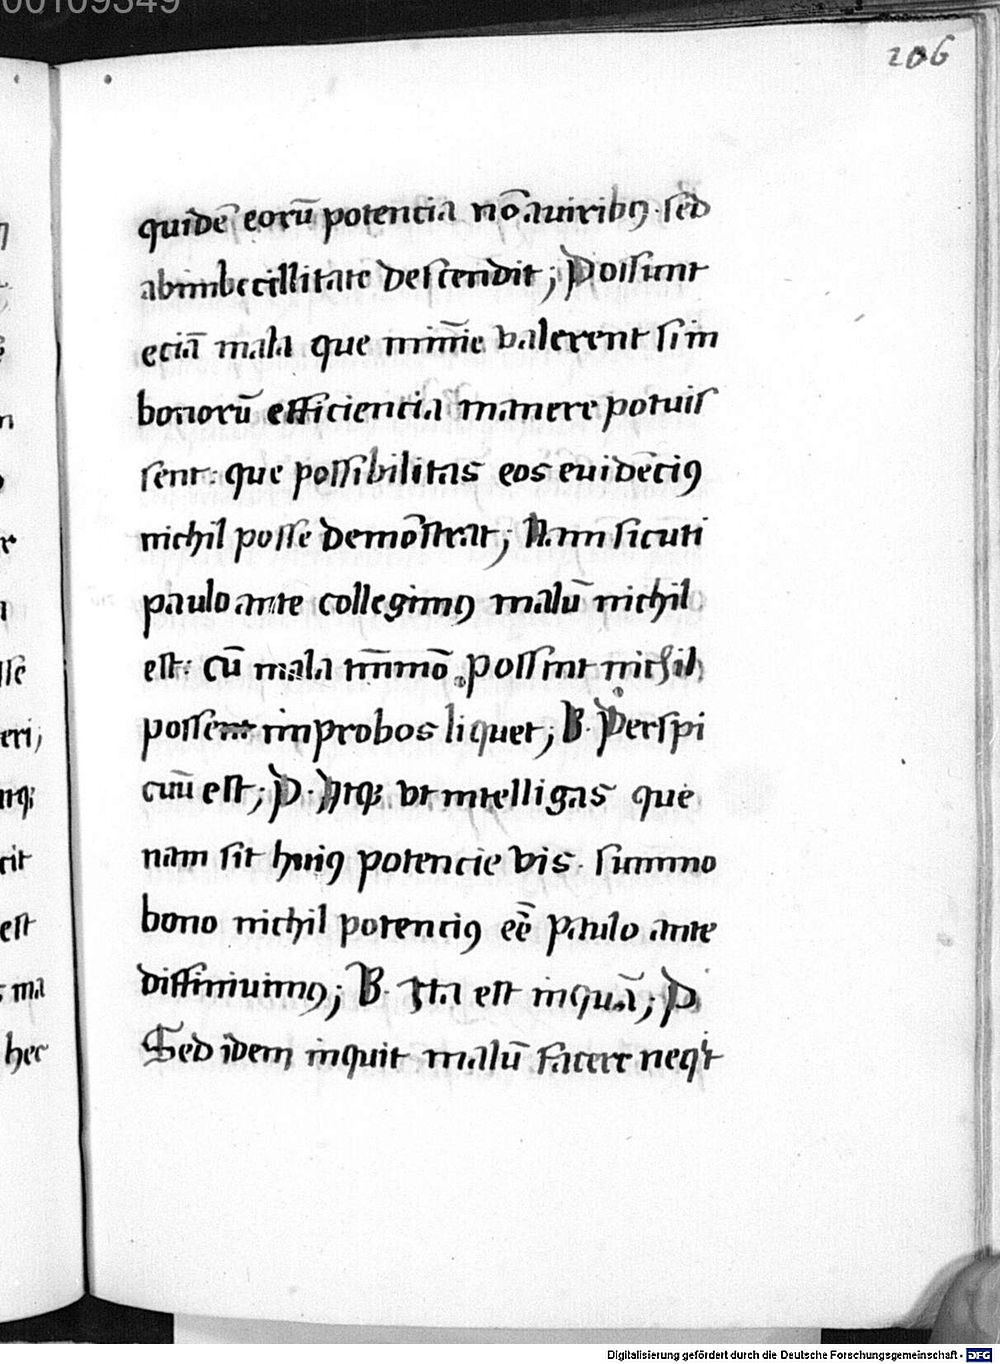 00109349
206
quidē eorū potencia nō auiribꝫ sed
abimbecillitate descendit; Possunt
eciā mala que mīīe valerent si in
bonorū efficiencia manere potuis
sent: que possibilitas eos euidēciꝰ
nichil posse demōstrat; Nam sicuti
paulo ante collegimꝰ malū nichil
est: cū mala tm̄mō possint nichil
possent improbos liquet; B. Perspi
cuū est; P. Atqꝫ vt intelligas que
nam sit huiꝰ potencie vis. summo
bono nichil potenciꝰ eē paulo ante
diffiniuimꝰ; B. Ita est inquā; P
Sed idem inquit malū facere neqͥt
ssē
eri;
rit
est
ma
hec
Digitalisierung gefördert durch die Deutsche Forschungsgemeinschaft - DFG